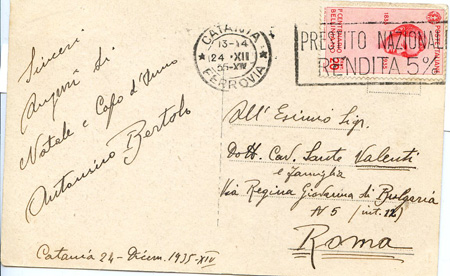 Sinceri
Auguri di
Natale e Capo d'Anno
Antonino Bertolo
Catania 24 - Dicem. 1935-XIV
CATANIA
13-14
24 XII
35-XIV
FERROVIA
PRESTITO NAZIONALE
RENDITA 5%
POSTE ITALIANE
All'Esimio Sig.
Dott. Cav. Sante Valenti
e famiglia
Via Regina Giovanna di Bulgaria
N 5 (int. 12)
Roma